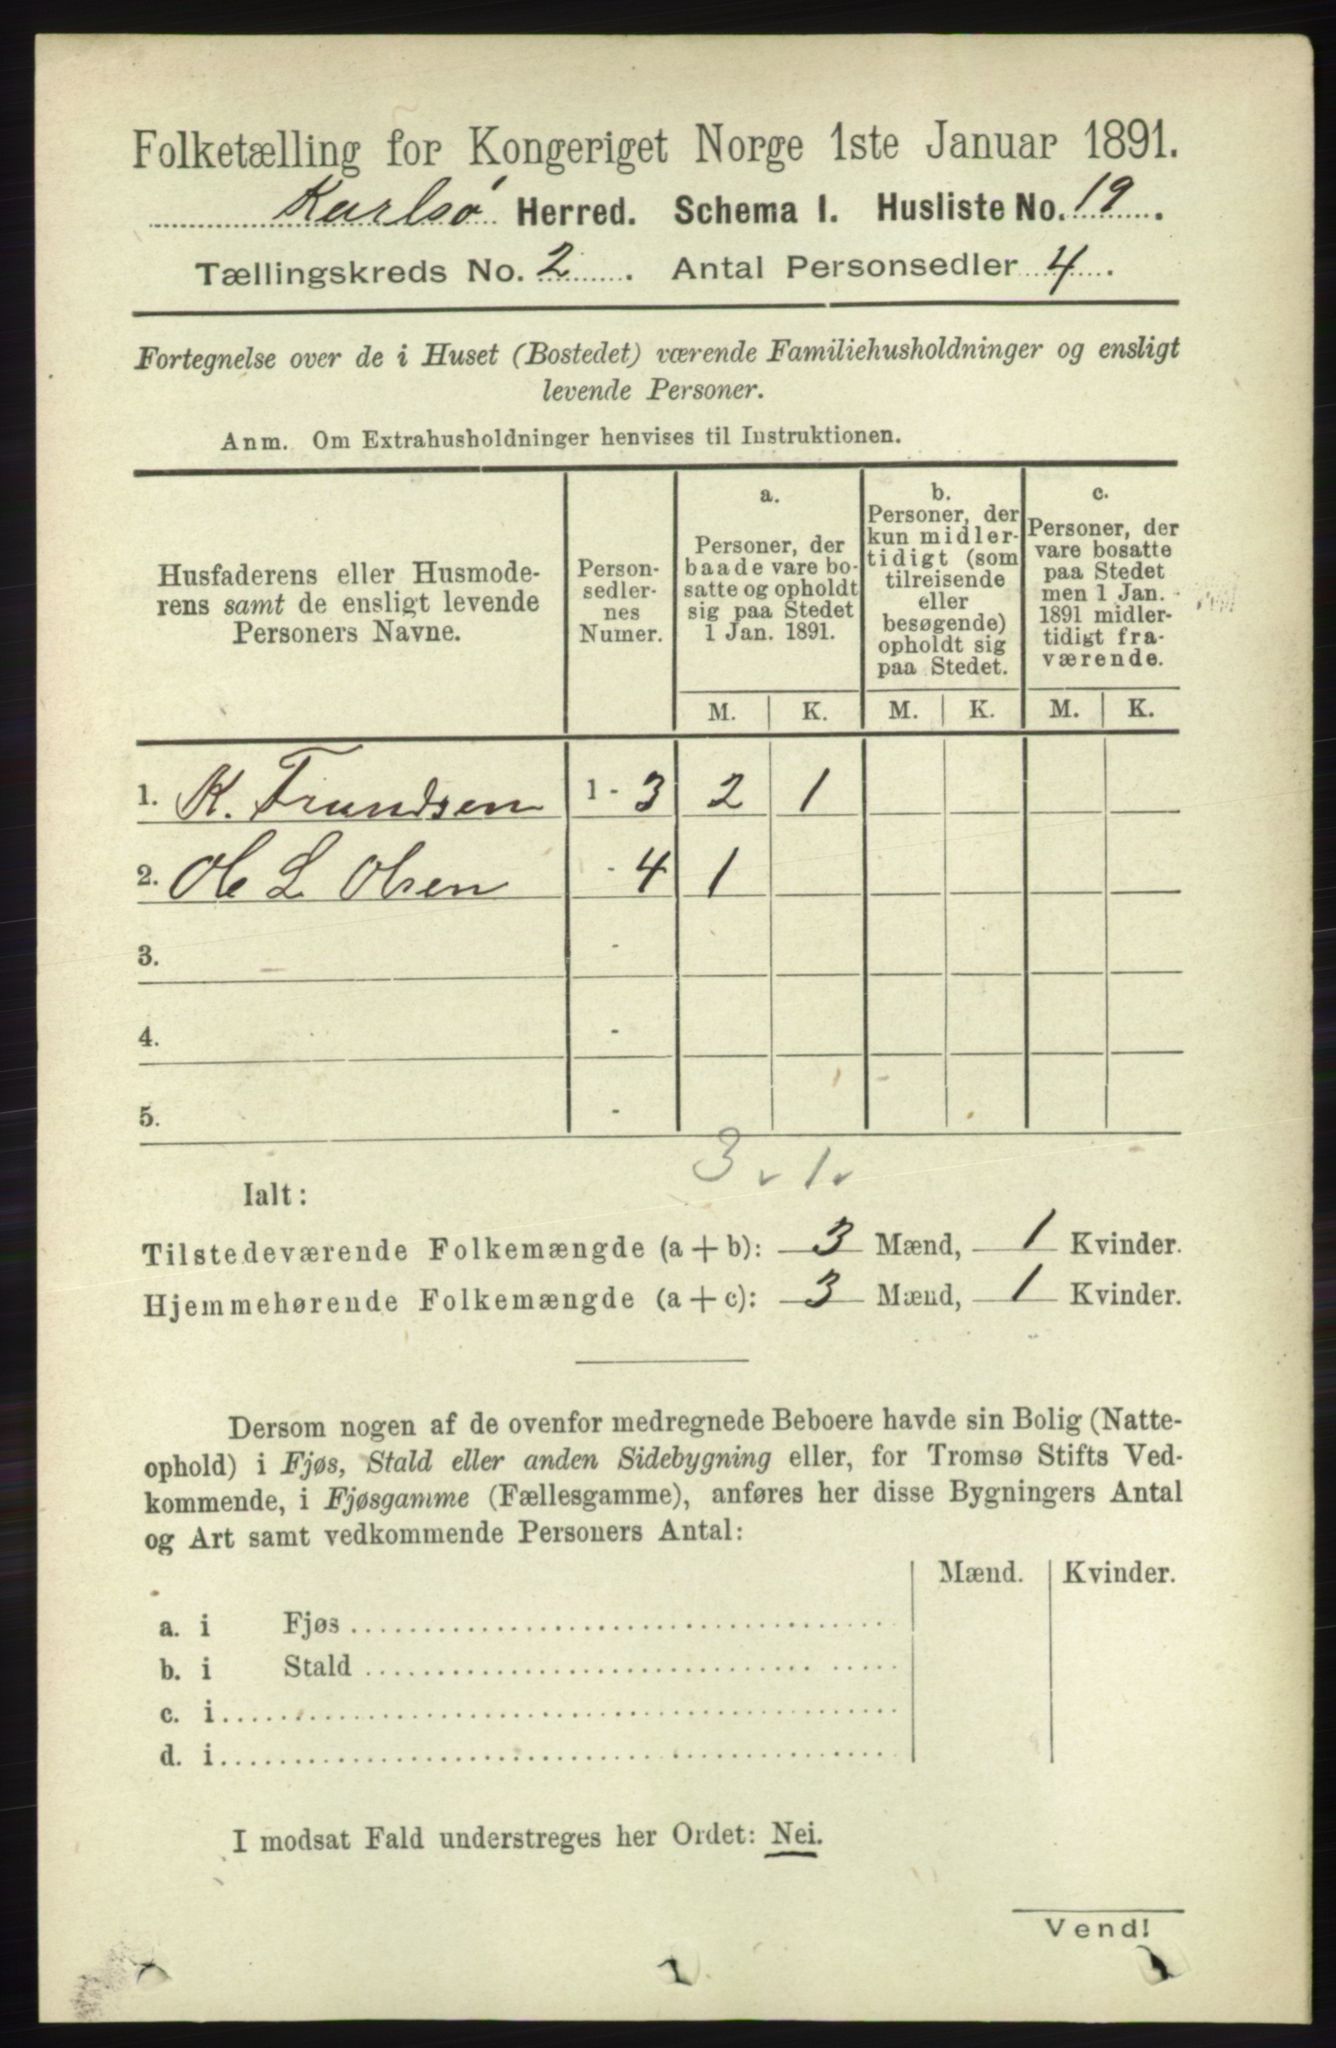 Folketælling for Kongeriget Norge 1ste Januar 1891.
Karlsø Herred. Schema I. Husliste No. 19.
Tællingskreds No. 2. Antal Personsedler 4.
Fortegnelse over de i Huset (Bostedet) værende Familiehusholdninger og ensligt
levende Personer.
Anm. Om Extrahusholdninger henvises til Instruktionen.
Husfaderens eller Husmode-
rens samt de ensligt levende
Personers Navne.
Person-
sedler-
nes
Numer.
a.
Personer, der
baade vare bo-
satte og opholdt
sig paa Stedet
1 Jan. 1891.
b.
Personer, der
kun midler-
tidigt (som
tilreisende
eller
besøgende)
opholdt sig
paa Stedet.
c.
Personer, der
vare bosatte
paa Stedet
men 1 Jan.
1891 midler-
tidigt fra-
værende.
M. K. M. K. M. K.
1. K. Trundsen 1 - 3 2 1
2. Ole L Olsen - 4 1
3. -
4. -
5. -
3 1
Ialt:
Tilstedeværende Folkemængde (a+b): 3 Mænd, 1 Kvinder.
Hjemmehørende Folkemængde (a+c): 3 Mænd, 1 Kvinder.
Dersom nogen af de ovenfor medregnede Beboere havde sin Bolig (Natte-
ophold) i Fjøs, Stald eller anden Sidebygning eller, for Tromsø Stifts Ved-
kommende, i Fjøsgamme (Fællesgamme), anføres her disse Bygningers Antal
og Art samt vedkommende Personers Antal:
Mænd. Kvinder.
a. i Fjøs
b. i Stald
c. i
d. i
I modsat Fald understreges her Ordet: Nei.
Vend!